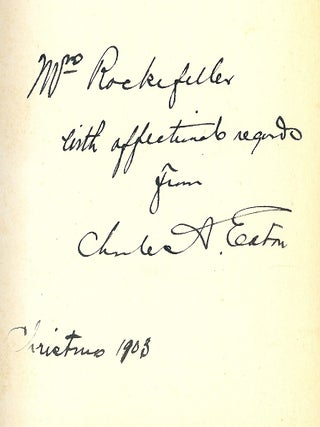 Mrs Rockefeller
with affectionate regards
from
Charles A. Eaton
Christmas 1903